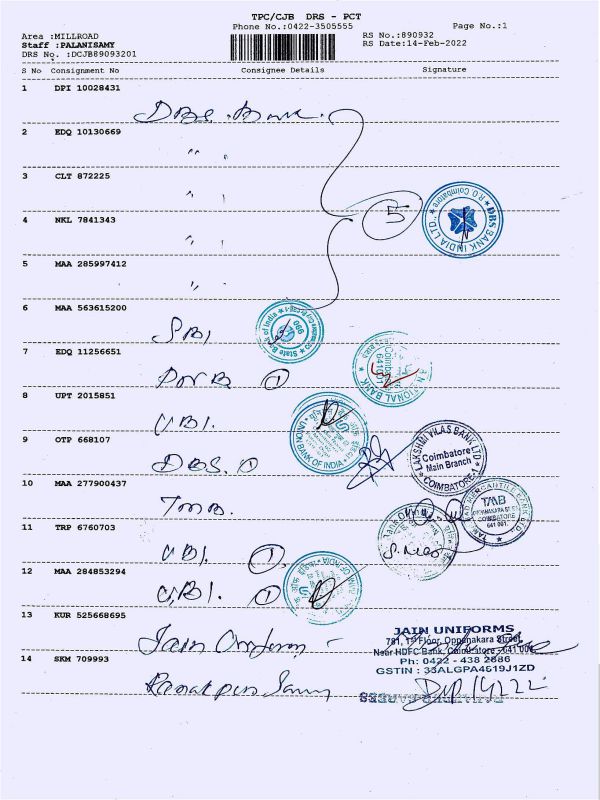 TPC/CJB DRS - PCT
Phone No.:0422-3505555
Page No.:1
Area :MILLROAD
Staff :PALANISAMY
DRS No. :DCJB89093201
RS No.:890932
RS Date:14-Feb-2022
S No Consignment No Consignee Details Signature
1 DPI 10028431
DBS Bank
2 EDQ 10130669
" "
3 CLT 872225
" "
5
DBS BANK INDIA LTD R.O. Coimbatore
4 NKL 7841343
" "
5 MAA 285997412
" "
6 MAA 563615200
SBI
State Bank of India
7 EDQ 11256651
PNB 1
NATIONAL BANK
8 UPT 2015851
UBI
UNION BANK OF INDIA
9 OTP 668107
DBS 1
LAKSHMI VILAS BANK LTD
Coimbatore
Main Branch
COIMBATORE-1
10 MAA 277900437
TMB
TMB
COIMBATORE
641 001
11 TRP 6760703
UBI 1
12 MAA 284853294
UBI 1
13 KUR 525668695
Jain Uniform
JAIN UNIFORMS
781, 1st Floor, Oppanakara Street,
Near HDFC Bank, Coimbatore - 641 001.
Ph: 0422 - 438 2686
GSTIN : 33ALGPA4619J1ZD
14 SKM 709993
14222